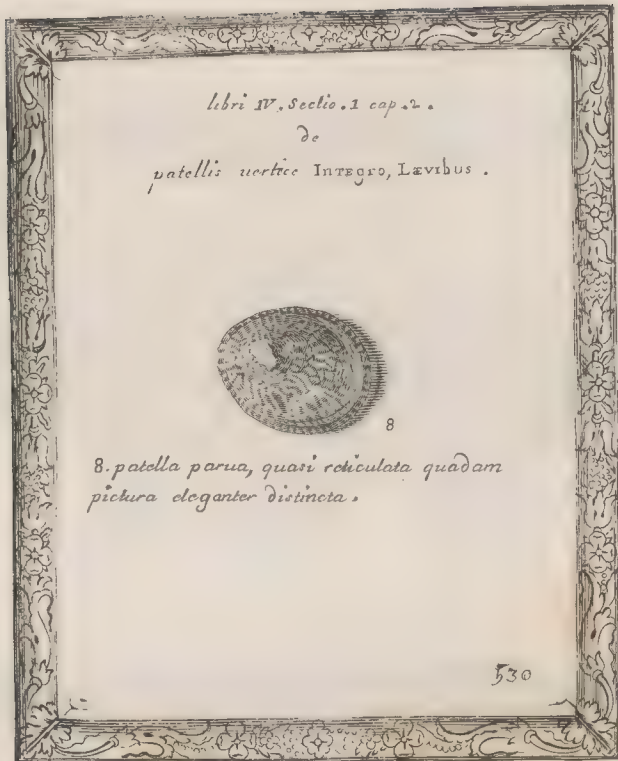 libri IV. Sectio. 1 cap. 2.
de
patellis uertice INTEgro, LÆVIbus.
8
8. patella parua, quasi reticulata quadam
pictura eleganter distincta.
530